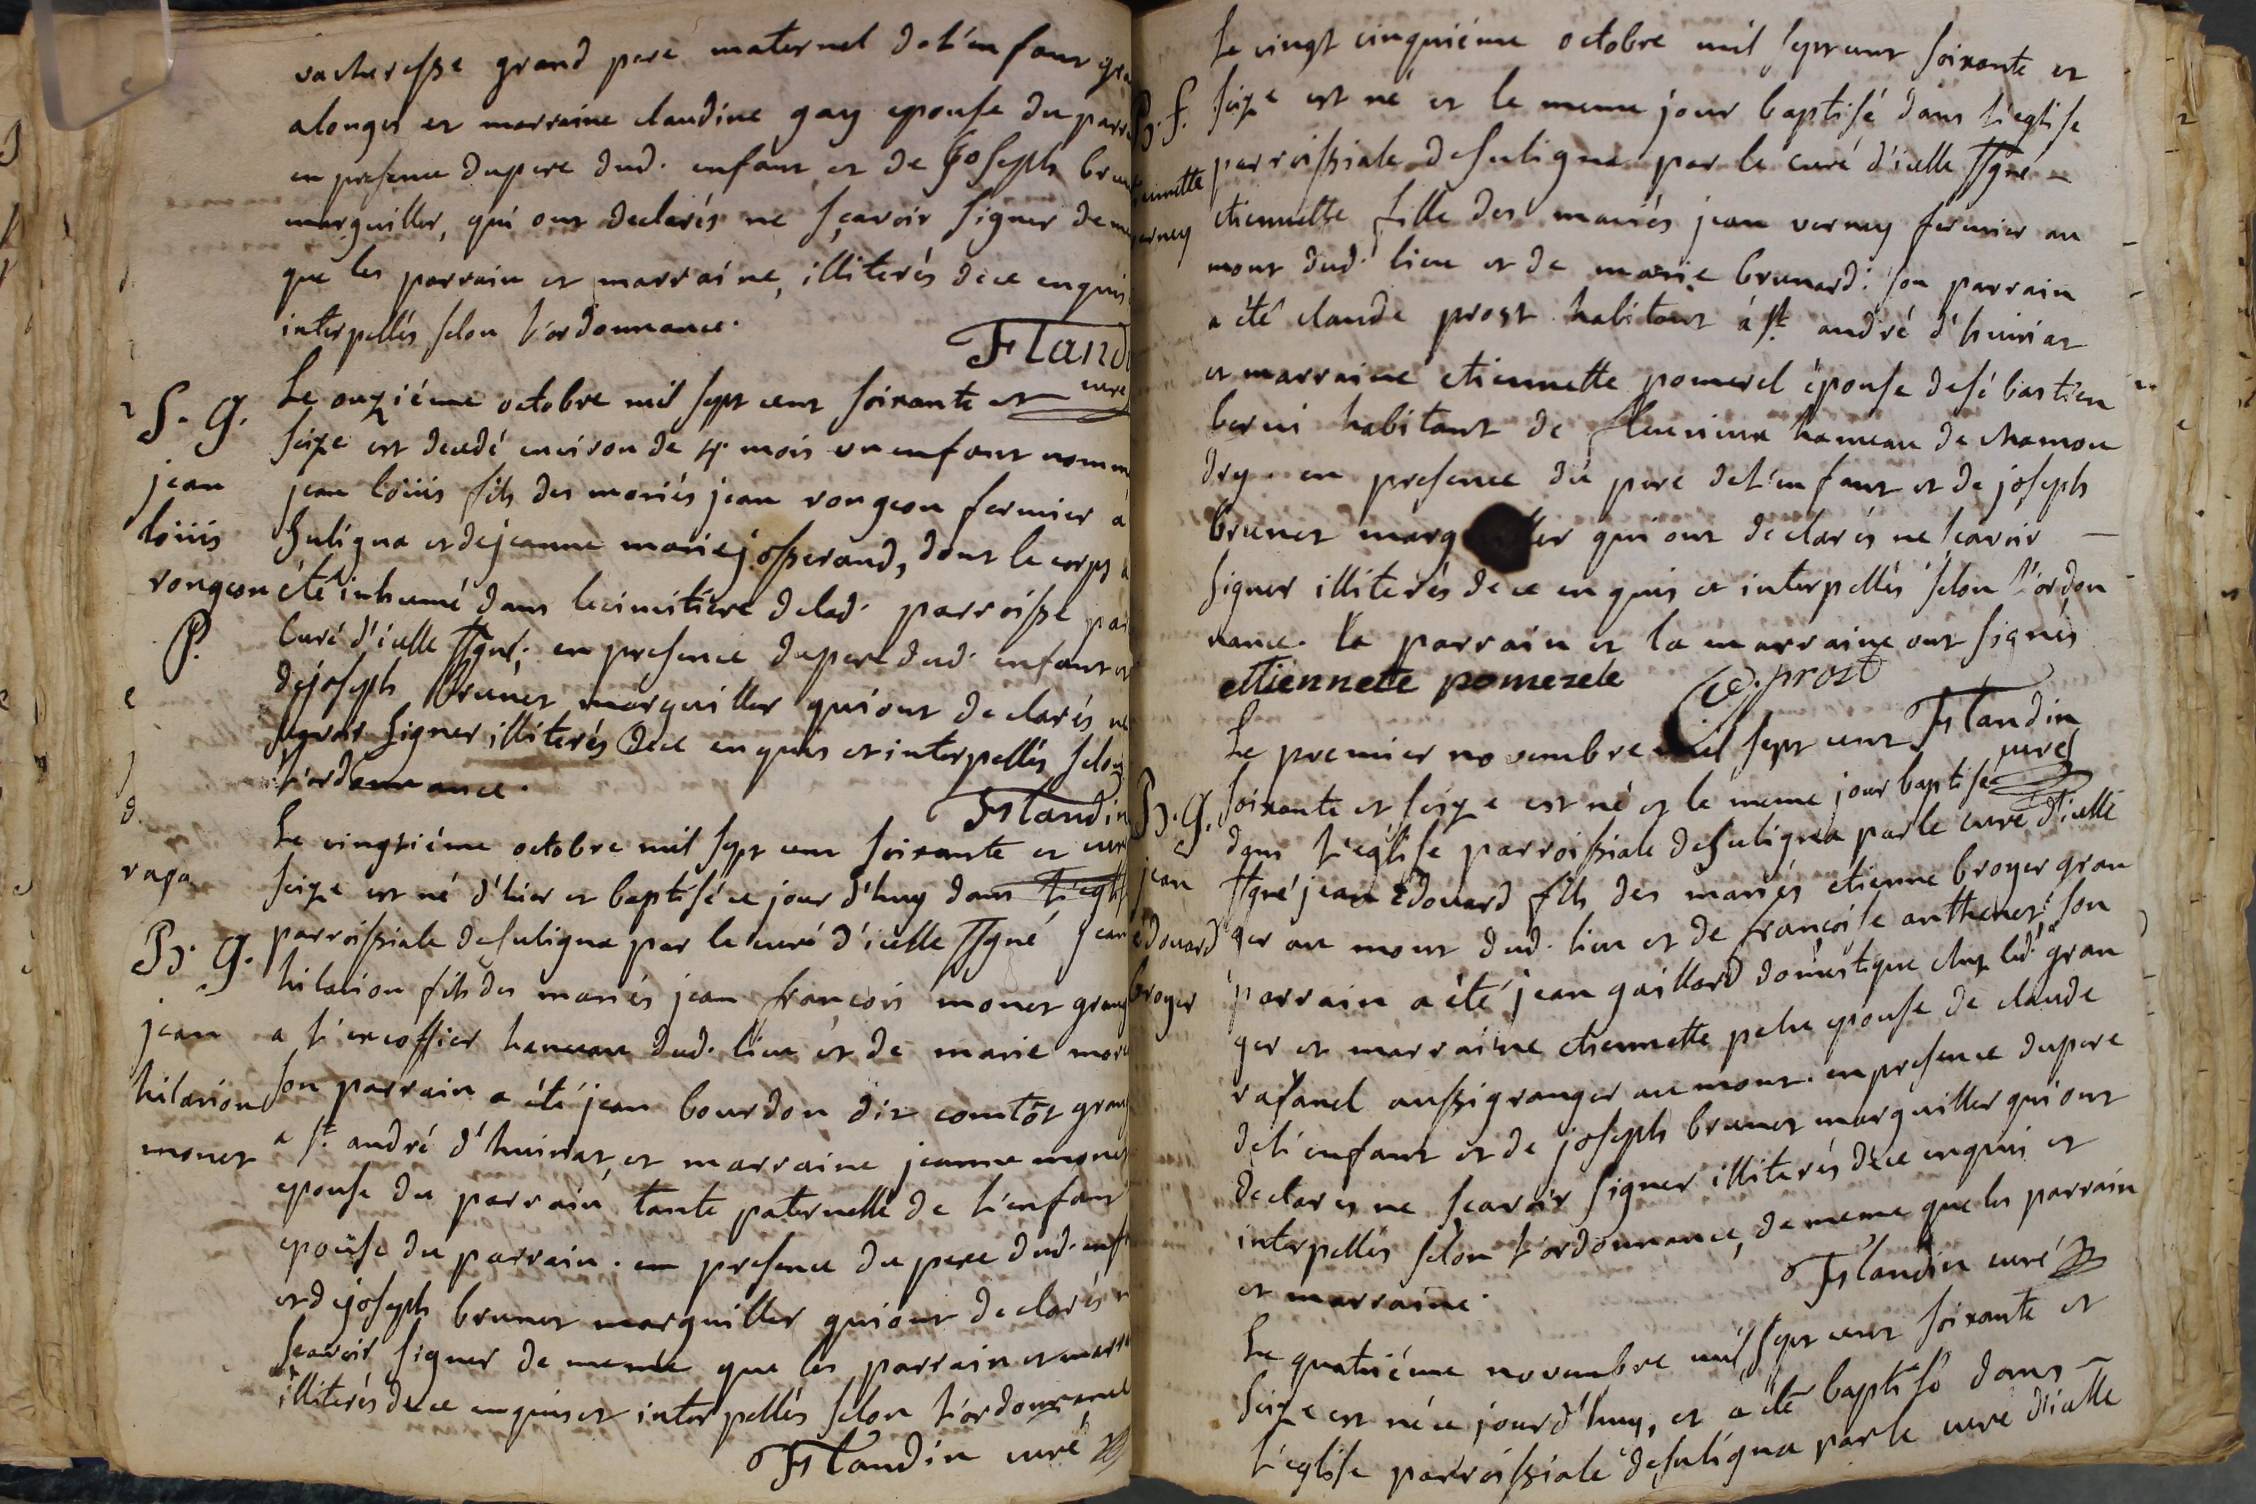 vacheresse grand pere maternel de l'enfant
alonges et marraine claudine gay epouse du
en presence du pere dud. enfant et de Joseph
marguiller, qui ont declarés ne sçavoir signer de
que les parrain et marraine, illiterés de ce enquis
interpellés selon l'ordonnance.
Fland
curé
S. G.
jean
loüis
rongeon
P.
Le onziéme octobre mil sept cent soixante et
seize est decedé environ de 4. mois un enfant nomm
jean loüis fils des mariés jean rongeon fermier a
Suligna et de jeanne marie josserand, dont le corps a
été inhumé dans le cimitiere de lad. parroisse par
Curé d'icelle ssgné; en presence du pere dud. enfant et
de joseph brunet marguiller qui ont declarés ne
sçavoir signer illiterés de ce enquis et interpellés selon
l'ordonnance.
Flandin
curé
B. G.
jean
hilarion
monet
Le vingtiéme octobre mil sept cent soixante et
seize est né d'hier et baptisé ce jour d'huy dans l'eglis
parroissiale de suligna par le curé d'icelle ssgné, jean
hilarion fils des mariés jean françois monet grang
a l'ercossier hameau dud. lieu et de marie mor
son parrain a été jean bourdon dit comtôt gran
a st. andré d'huiriat, et marraine jeanne monet
epouse du parrain tante paternelle de l'enfant
epoüse du parrain. en presence du pere dud. enf
et de joseph brunet marguiller qui ont declarés n
sçavoir signer de meme que les parrain et marr
illiterés de ce enquis et interpellés selon l'ordonnance
Flandin curé
B. f.
ernay
Le vingt cinquiéme octobre mil sept cent soixante et
seize est né et le meme jour baptisé dans l'eglise
parroissiale de suligna par le curé d'icelle ssgné
etiennette fille des mariés jean vernay fermier au
mont dud. lieu et de marie brunard: son parrain
a été claude prost habitant a st. andré d'huiriat
et marraine etiennette pomerel épouse de sébastien
berni habitant de fleurieux hameau de chamon
dey. en presence du pere de l'enfant et de joseph
brunet marg ller qui ont declarés ne scavoir
signer illiterés de ce enquis et interpellés selon l'ordon
nance. le parrain et la marraine ont signés
ettiennete pomerele C. prost
Flandin
curé
B. G.
jean
edouard
broyer
Le premier novembre mil sept cent
soixante et seize est né et le meme jour baptisé
dans l'église parroissiale de suligna par le curé d'icelle
ssgné jean Edouard fils des mariés etienne broyer gran
ger au mont dud. lieu et de françoise anthenet: son
parrain a été jean gaillard domestique chez led. gran
ger et marraine etiennette pelu epouse de claude
rafanel aussi granger au mont. en presence du pere
de l'enfant et de joseph brunet marguiller qui ont
declarés ne scavoir signer illiterés de ce enquis et
interpellés selon l'ordonnance, de meme que les parrain
et marraine.
Flandin curé
Le quatriéme novembre mil sept cent soixante et
Seize est né ce jour d'huy, et a été baptisé dans
l'eglise parroissiale de suligna par le curé d'icelle